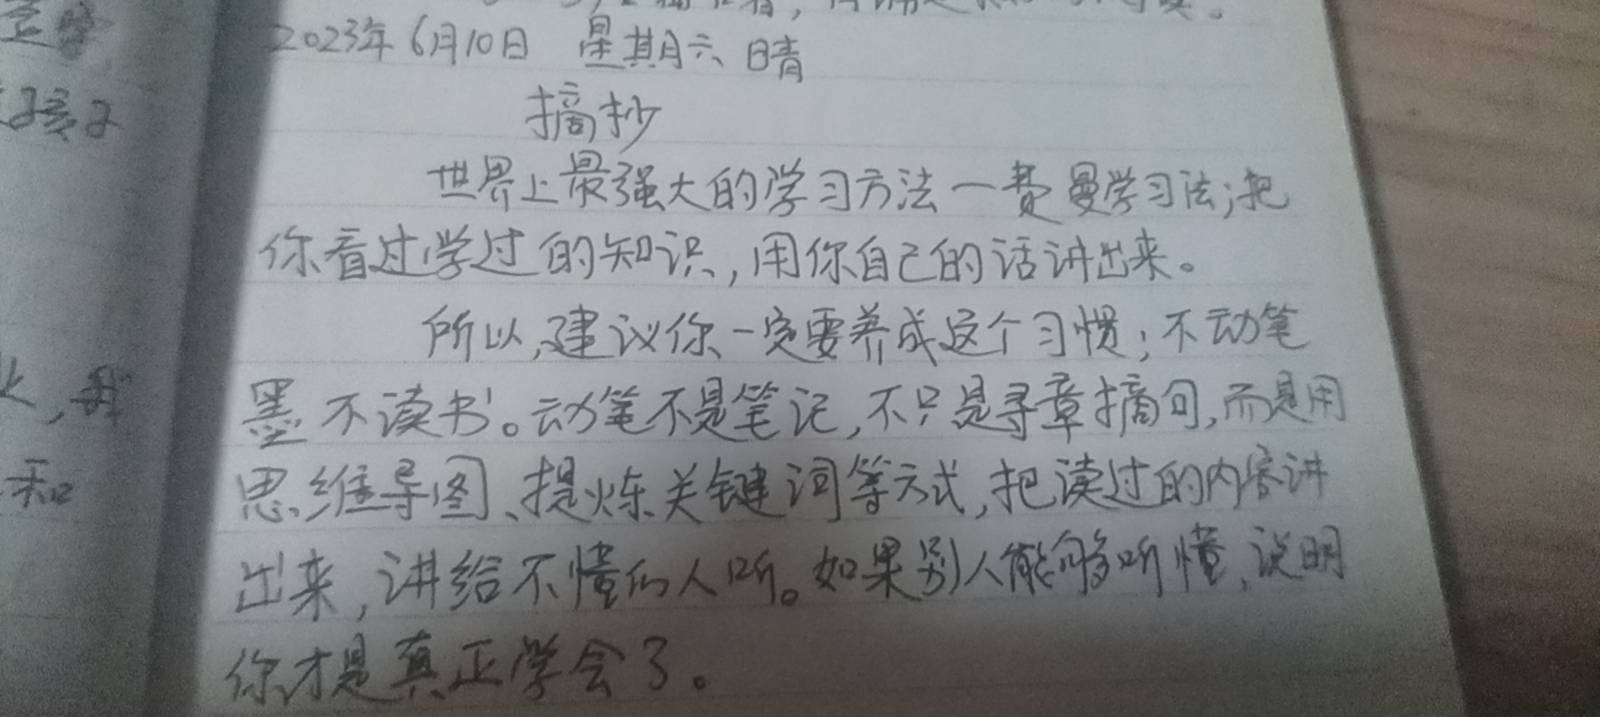 2023年6月10日 星期六 晴
摘抄
世界上最强大的学习方法一费曼学习法;把
你看过学过的知识,用你自己的话讲出来。
所以,建议你一定要养成这个习惯;不动笔
墨不读书。动笔不是笔记,不只是寻章摘句,而是用
思维导图、提炼关键词等方式,把读过的内容讲
出来,讲给不懂的人听。如果别人能够听懂,说明
你才是真正学会了。
孩子
,我
和